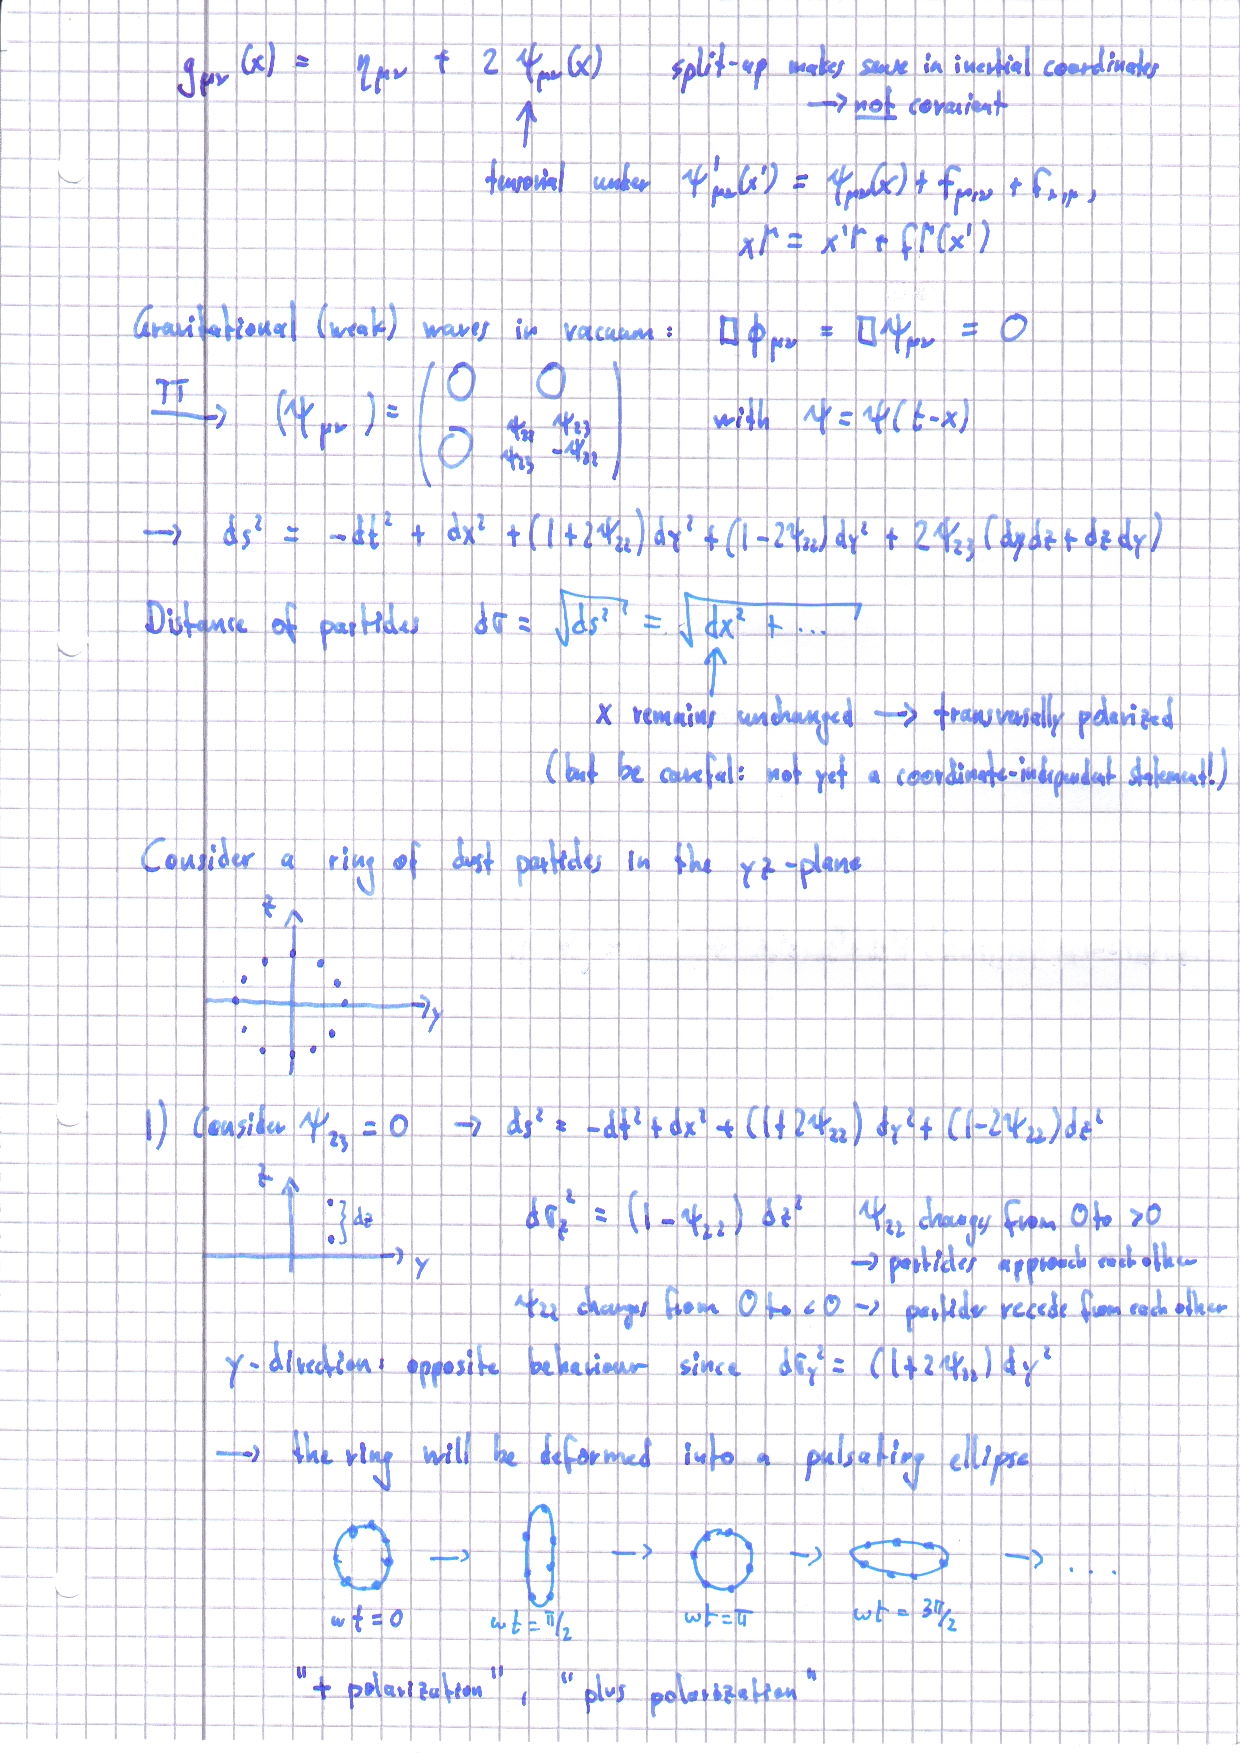 g_μν(x) = η_μν + 2 ψ_μν(x) split-up makes sense in inertial coordinates
→ not covariant
tensorial under ψ'_μν(x') = ψ_μν(x) + f_μ,ν + f_ν,μ,
x^μ = x'^μ + f^μ(x')
Gravitational (weak) waves in vacuum: □ϕ_μν = □ψ_μν = 0
TT → (ψ_μν) = ( 0 0 with ψ = ψ(t-x)
ψ_22 ψ_23
0 ψ_23 -ψ_22 )
→ ds² = -dt² + dx² + (1+2ψ_22) dy² + (1-2ψ_22) dy² + 2ψ_23 (dydz + dzdy)
Distance of particles dσ = √ds² = √dx² + ...
x remains unchanged → transversally polarized
(but be careful: not yet a coordinate-independent statement!)
Consider a ring of dust particles in the yz-plane
z
y
1) Consider ψ_23 = 0 → ds² = -dt² + dx² + (1+2ψ_22) dy² + (1-2ψ_22) dz²
z
} dz dσ_z² = (1-ψ_22) dz² ψ_22 changes from 0 to >0
→ particles approach each other
y
ψ_22 changes from 0 to <0 → particles recede from each other
y-direction: opposite behaviour since dσ_y² = (1+2ψ_22) dy²
→ the ring will be deformed into a pulsating ellipse
→ → → → ....
ωt = 0 ωt = π/2 ωt = π ωt = 3π/2
"+ polarization", "plus polarization"